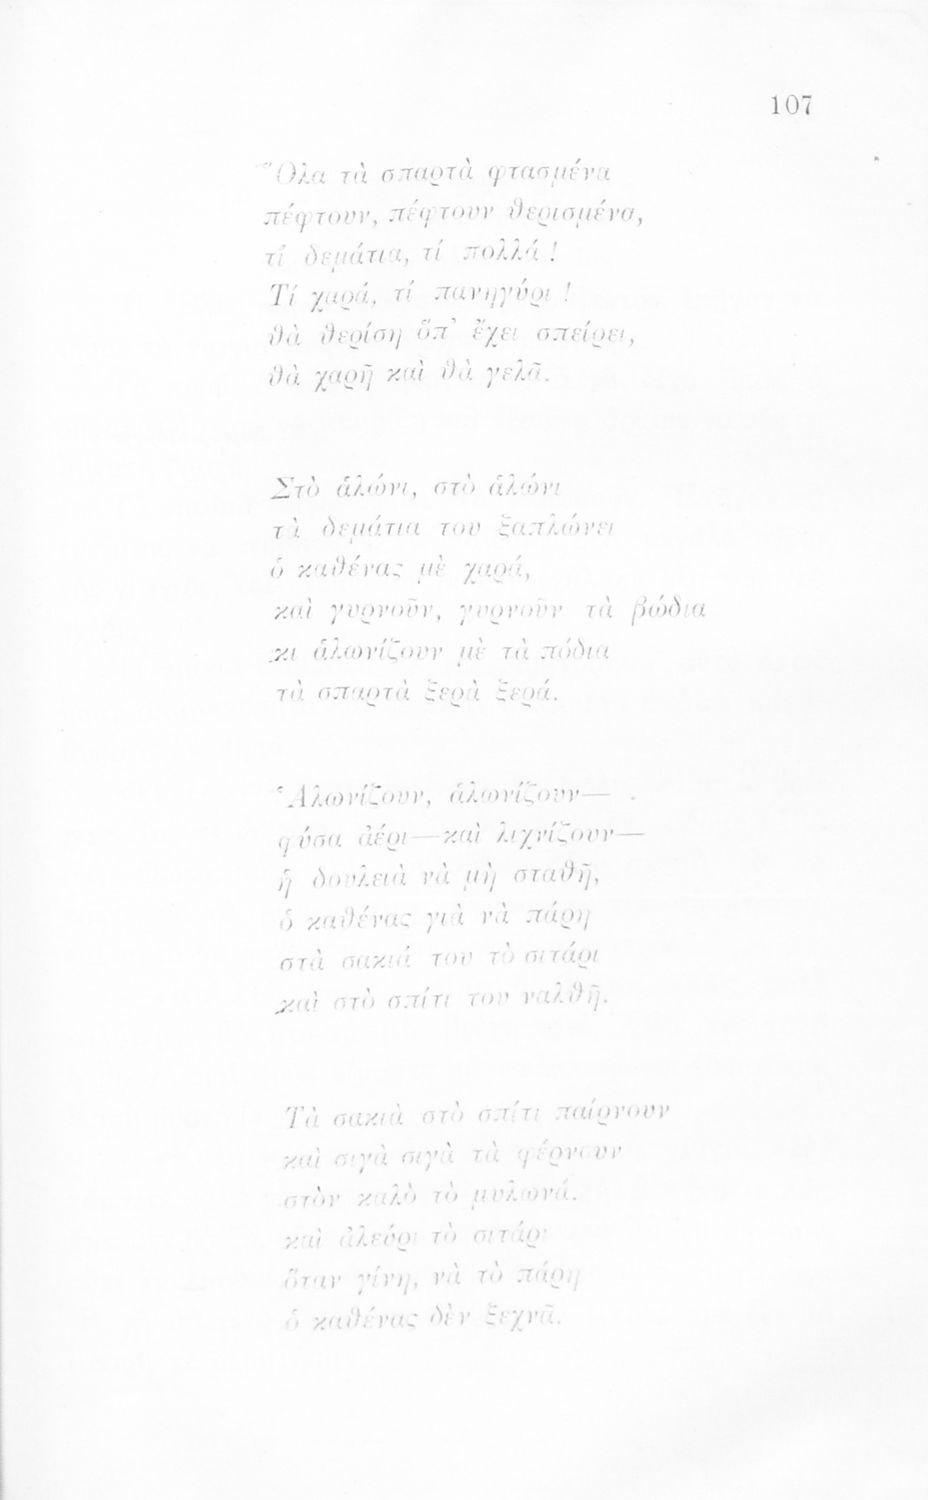 107
Ὅλα τὰ σπαρτὰ φτασμένα
πέφτουν, πέφτουν θερισμένα,
τί δεμάτια, τί πολλά !
Τί χαρά, τί πανηγύρι !
θὰ θερίσῃ ὅπ' ἔχει σπείρει,
θὰ χαρῇ καὶ θὰ γελᾷ.
Στὸ ἁλώνι, στὸ ἁλώνι
τὰ δεμάτια του ξαπλώνει
ὁ καθένας μὲ χαρά,
καὶ γυρνοῦν, γυρνοῦν τὰ βώδια
κι ἁλωνίζουν μὲ τὰ πόδια
τὰ σπαρτὰ ξερὰ ξερά.
Ἁλωνίζουν, ἁλωνίζουν—
φύσα ἀέρι—καὶ λιχνίζουν—
ἡ δουλειὰ νὰ μὴ σταθῇ,
ὁ καθένας γιὰ νὰ πάρῃ
στὰ σακιά του τὸ σιτάρι
καὶ στὸ σπίτι του ναλθῇ.
Τὰ σακιὰ στὸ σπίτι παίρνουν
καὶ σιγὰ σιγὰ τὰ φέρνουν
στὸν καλὸ τὸ μυλωνά.
καὶ ἀλεύρι τὸ σιτάρι
ὅταν γίνῃ, νὰ τὸ πάρῃ
ὁ καθένας δὲν ξεχνᾷ.